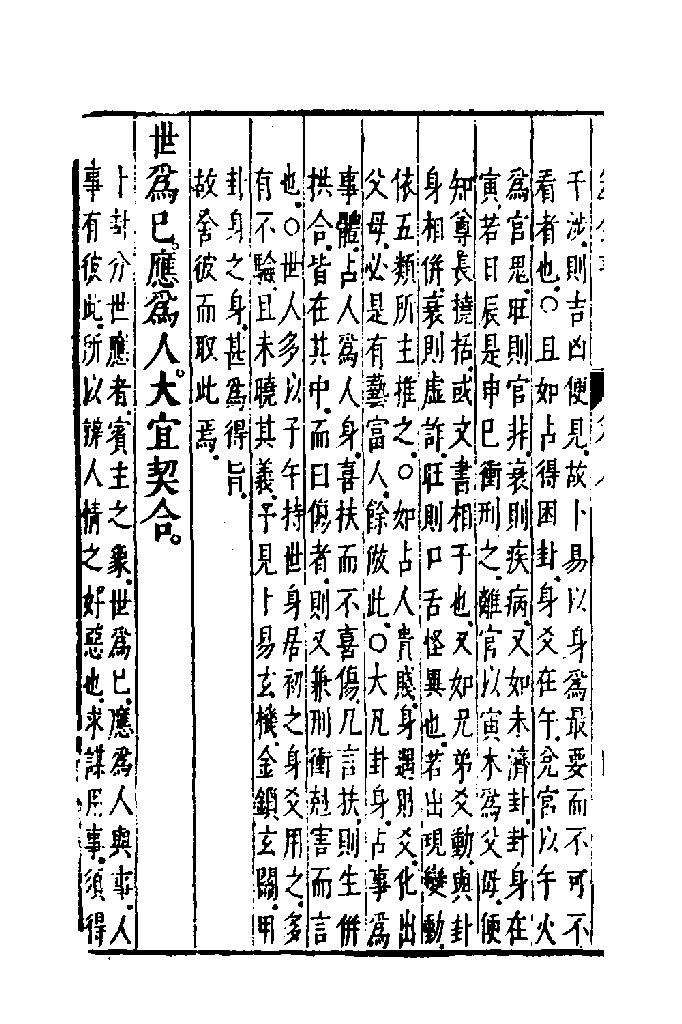 干涉則吉凶便見故卜易以身爲最要而不可不
看者也○且如占得困卦身爻在午兌宮以午火
爲官鬼旺則官非衰則疾病又如未濟卦卦身在
寅若日辰是申巳衝刑之離宮以寅木爲父母便
知尊長撓括或文書相干也又如兄弟爻動與卦
身相併衰則虛詐旺則口舌怪異也若出現變動
依五類所主推之○如占人貴賤身遇財爻化出
父母必是有藝富人餘倣此○大凡卦身占事爲
事體占人爲人身喜扶而不喜傷凡言扶則生併
拱合皆在其中而曰傷者則又兼刑衝剋害而言
也○世人多以子午持世身居初之身爻用之多
有不驗且未曉其義予見卜易玄機金鎖玄關用
卦身之身甚爲得旨
故舍彼而取此焉
世爲巳應爲人大宜契合
卜卦分世應者賓主之象世爲巳應爲人與事人
事有彼此所以辨人情之好惡也求謀用事須得